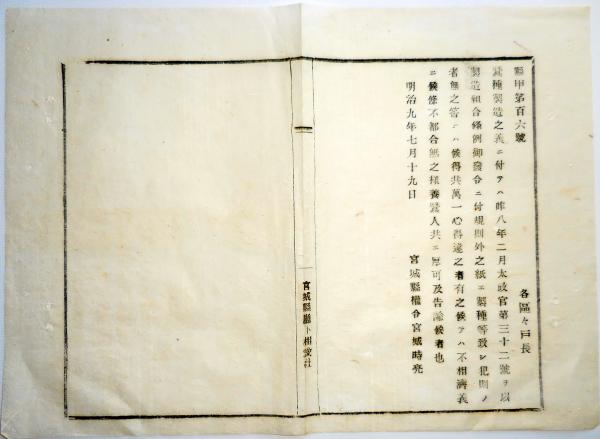 縣甲第百六號
各區々戸長
蚕種製造之義ニ付テハ昨八年二月太政官第三十二號ヲ以
製造組合條例御發令ニ付規則外之紙ニ製種等致シ犯則ノ
者無之筈ニハ候得共萬一心得違之者有之候テハ不相濟義
ニ候條不都合無之樣養蚕人共ニ厚可及告諭候者也
明治九年七月十九日
宮城縣權令宮城時亮
宮城縣廳下相愛社